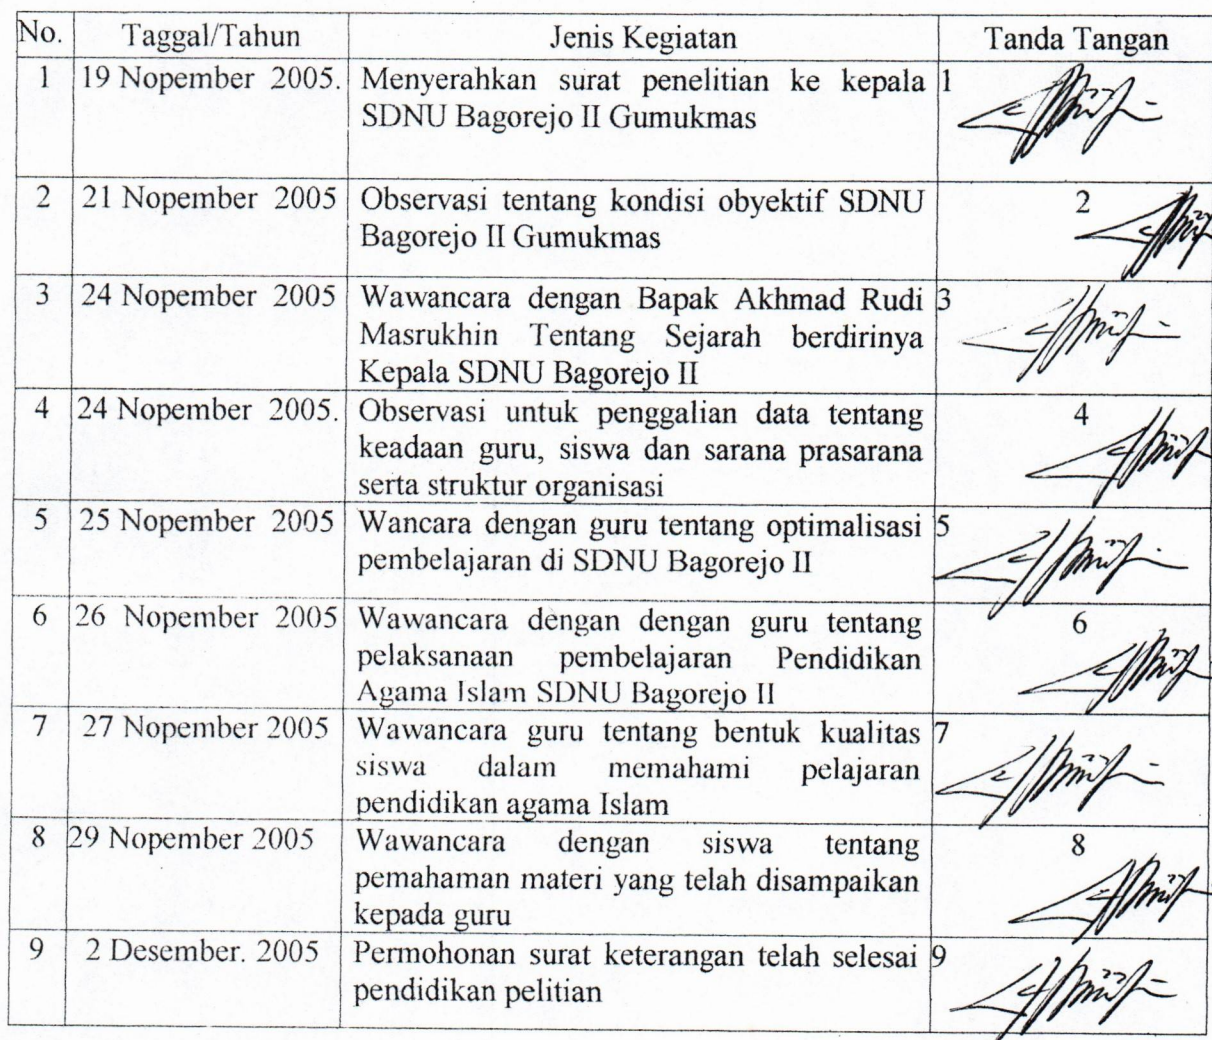 No. Taggal/Tahun Jenis Kegiatan Tanda Tangan
1 19 Nopember 2005. Menyerahkan surat penelitian ke kepala 1
SDNU Bagorejo II Gumukmas
2 21 Nopember 2005 Observasi tentang kondisi obyektif SDNU 2
Bagorejo II Gumukmas
3 24 Nopember 2005 Wawancara dengan Bapak Akhmad Rudi 3
Masrukhin Tentang Sejarah berdirinya
Kepala SDNU Bagorejo II
4 24 Nopember 2005. Observasi untuk penggalian data tentang 4
keadaan guru, siswa dan sarana prasarana
serta struktur organisasi
5 25 Nopember 2005 Wancara dengan guru tentang optimalisasi 5
pembelajaran di SDNU Bagorejo II
6 26 Nopember 2005 Wawancara dengan dengan guru tentang 6
pelaksanaan pembelajaran Pendidikan
Agama Islam SDNU Bagorejo II
7 27 Nopember 2005 Wawancara guru tentang bentuk kualitas 7
siswa dalam memahami pelajaran
pendidikan agama Islam
8 29 Nopember 2005 Wawancara dengan siswa tentang 8
pemahaman materi yang telah disampaikan
kepada guru
9 2 Desember. 2005 Permohonan surat keterangan telah selesai 9
pendidikan pelitian